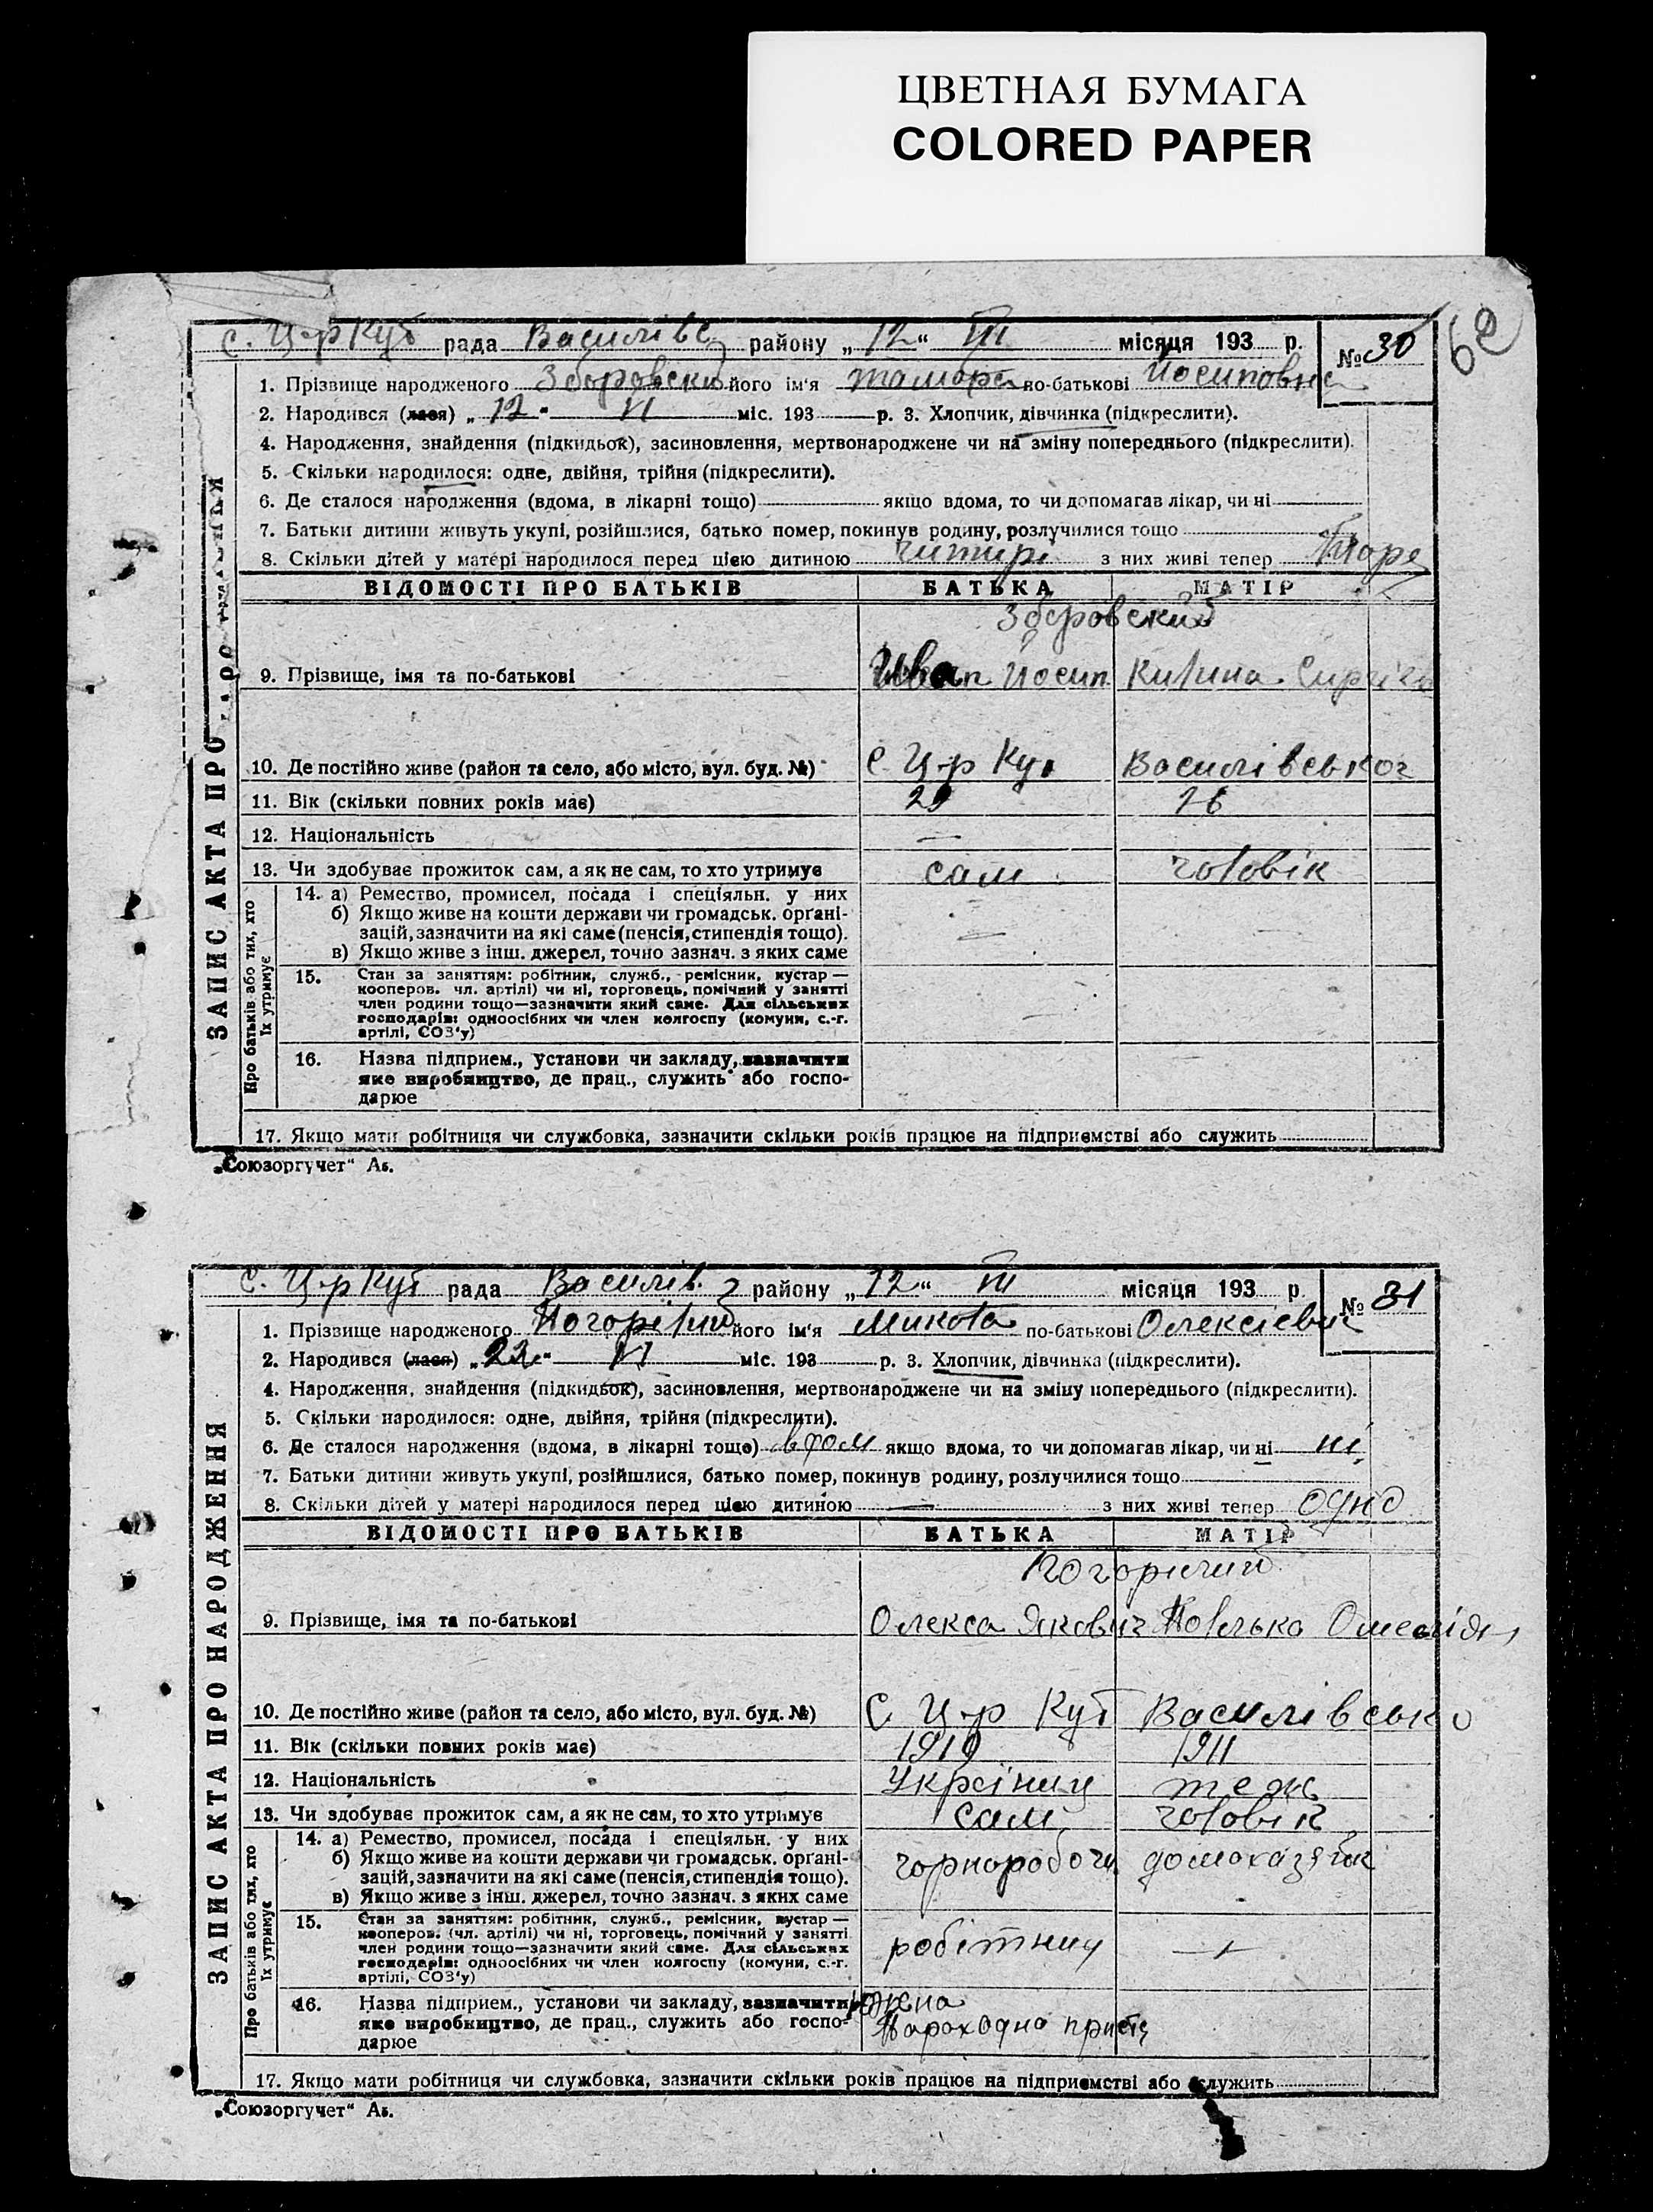 ЦВЕТНАЯ БУМАГА
COLORED PAPER
с. Ц-р Кут рада Василівс району „12“ III місяця 193 р. №30
1. Прізвище народженого Зборовски його ім'я тамара по-батькові Йосиповна
2. Народився (лася) „12“ VI міс. 193 р. 3. Хлопчик, дівчинка (підкреслити).
4. Народження, знайдення (підкидьок), засиновлення, мертвонароджене чи на зміну попереднього (підкреслити).
5. Скільки народилося: одне, двійня, трійня (підкреслити).
6. Де сталося народження (вдома, в лікарні тощо) якщо вдома, то чи допомагав лікар, чи ні
7. Батьки дитини живуть укупі, розійшлися, батько помер, покинув родину, розлучилися тощо
8. Скільки дітей у матері народилося перед цією дитиною читирі з них живі тепер
ВІДОМОСТІ ПРО БАТЬКІВ БАТЬКА МАТІР
Зборовский
9. Прізвище, імя та по-батькові Иван Йосип
10. Де постійно живе (район та село, або місто, вул. буд. №) с Ц-р Кут Василівськог
11. Вік (скільки повних років має) 29 26
12. Національність —
13. Чи здобуває прожиток сам, а як не сам, то хто утримує сам чоловік
14. а) Ремество, промисел, посада і спеціяльн. у них
б) Якщо живе на кошти держави чи громадськ. органі-
зацій, зазначити на які саме (пенсія, стипендія тощо).
в) Якщо живе з інш. джерел, точно зазнач. з яких саме
15. Стан за заняттям: робітник, служб., ремісник, кустар —
кооперов. чл. артілі) чи ні, торговець, помічний у занятті
член родини тощо—зазначити який саме. Для сільських
господарів: одноосібних чи член колгоспу (комуни, с.-г.
артілі, СОЗ'у)
16. Назва підприєм., установи чи закладу, зазначити
яке виробництво, де прац., служить або госпо-
дарює
17. Якщо мати робітниця чи службовка, зазначити скільки років працює на підприємстві або служить
ЗАПИС АКТА ПРО
Про батьків або тих, хто
їх утримує
„Союзоргучет“ Аб.
с. Ц-р Кут рада Василів. району „12“ III місяця 193 р. № 31
1. Прізвище народженого Погорілий його ім'я Микола по-батькові Олексієвич
2. Народився (лася) „22“ VI міс. 193 р. 3. Хлопчик, дівчинка (підкреслити).
4. Народження, знайдення (підкидьок), засиновлення, мертвонароджене чи на зміну попереднього (підкреслити).
5. Скільки народилося: одне, двійня, трійня (підкреслити).
6. Де сталося народження (вдома, в лікарні тощо) вдом якщо вдома, то чи допомагав лікар, чи ні ні
7. Батьки дитини живуть укупі, розійшлися, батько помер, покинув родину, розлучилися тощо
8. Скільки дітей у матері народилося перед цією дитиною — з них живі тепер одно
ВІДОМОСТІ ПРО БАТЬКІВ БАТЬКА МАТІР
Погорилий
9. Прізвище, імя та по-батькові Олекса Якович
10. Де постійно живе (район та село, або місто, вул. буд. №) С Ц-р Кут Василівсько
11. Вік (скільки повних років має) 1910 1911
12. Національність Україниц теж
13. Чи здобуває прожиток сам, а як не сам, то хто утримує сам чоловік
14. а) Ремество, промисел, посада і спеціяльн. у них
б) Якщо живе на кошти держави чи громадськ. органі- чорноробочи домохазяйк
зацій, зазначити на які саме (пенсія, стипендія тощо).
в) Якщо живе з інш. джерел, точно зазнач. з яких саме
15. Стан за заняттям: робітник, служб., ремісник, кустар —
кооперов. (чл. артілі) чи ні, торговець, помічний у занятті
член родини тощо—зазначити який саме. Для сільських робітниц
господарів: одноосібних чи член колгоспу (комуни, с.-г.
артілі, СОЗ'у)
16. Назва підприєм., установи чи закладу, зазначити
яке виробництво, де прац., служить або госпо- Пароходна приста
дарює
17. Якщо мати робітниця чи службовка, зазначити скільки років працює на підприємстві або служить
ЗАПИС АКТА ПРО НАРОДЖЕННЯ
Про батьків або тих, хто
їх утримує
„Союзоргучет“ Аб.